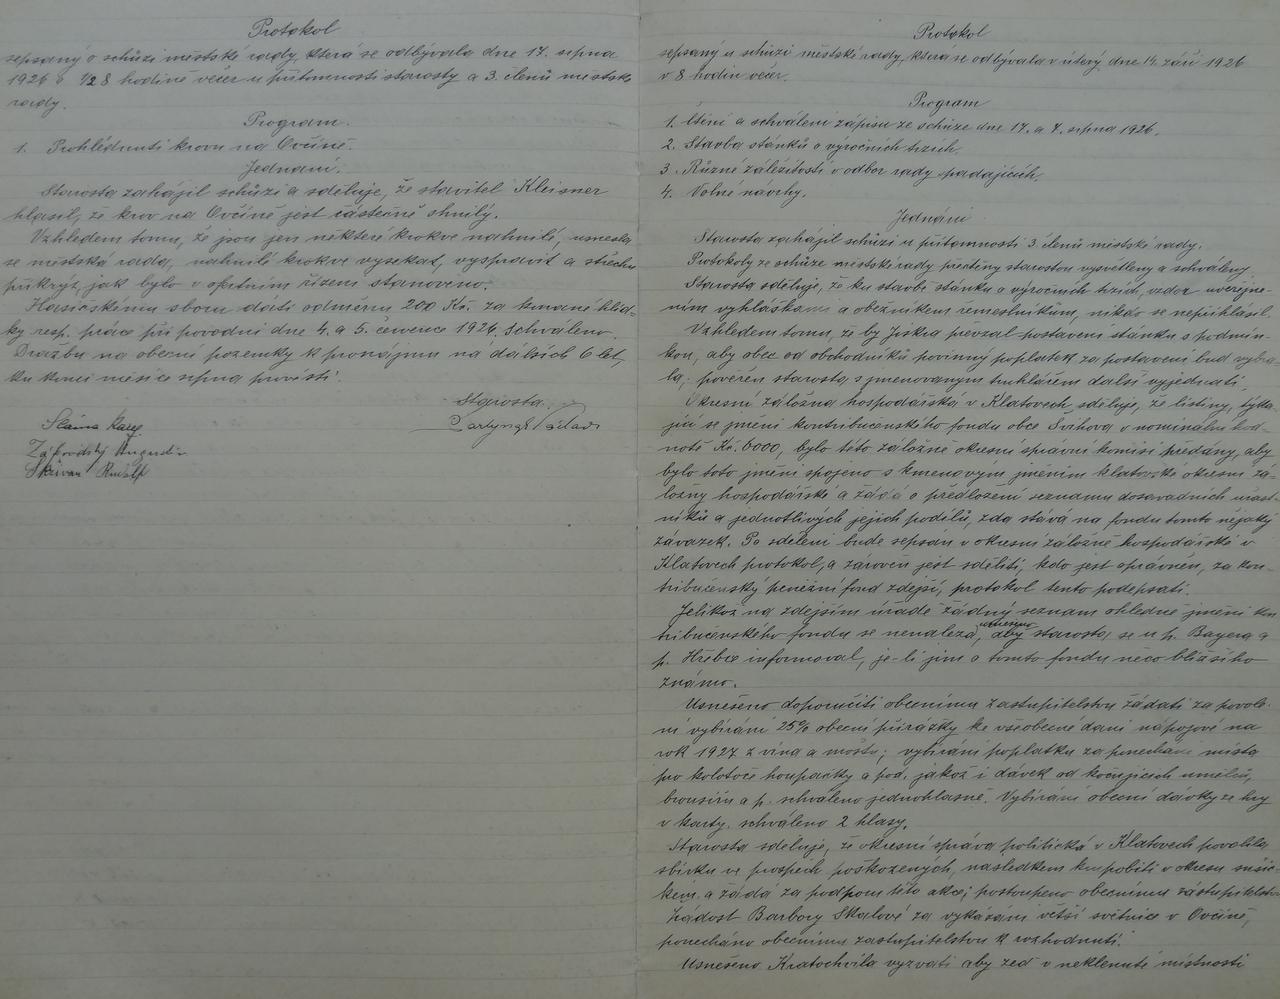 Protokol
sepsaný o schůzi městské rady, která se odbývala dne 17. srpna
1926 o 1/2 8 hodině večer u přítomnosti starosty a 3. členů městské
rady.
Program.
1. Prohlédnutí krovu na Ovčíně.
Jednání.
Starosta zahájil schůzi a sděluje, že stavitel Kleisner
hlásil, že krov na Ovčíně jest částečně shnilý.
Vzhledem tomu, že jsou jen některé krokve nahnilé, usnesla
se městská rada, nahnilé krokve vysekat, vyspravit a střechu
přikrýt, jak bylo v ofertním řízení stanoveno.
Hasičskému sboru dáti odměnu 200 Kč. za konané hlíd-
ky resp. práce při povodni dne 4. a 5. července 1926, schváleno.
Dražbu na obecní pozemky k pronájmu na dalších 6 let,
ku konci měsíce srpna provésti.
Starosta
Sláma Karel
Augustin
Skřivan Rudolf
Protokol
sepsaný o schůzi městské rady, která se odbývala v úterý dne 14. září 1926
v 8 hodin večer.
Program
1. Čtení a schválení zápisu ze schůze dne 17. a 7. srpna 1926.
2. Stavba stánků o výročních trzích.
3. Různé záležitosti v odbor rady padajících.
4. Volné návrhy.
Jednání
Starosta zahájil schůzi u přítomnosti 3. členů městské rady.
Protokoly ze schůze městské rady přečteny starostou vysvětleny a schváleny.
Starosta sděluje, že ku stavbě stánků o výročních trzích, vzdor uveřejně-
ním vyhláškami a oběžníkem řemeslníkům, nikdo se nepřihlásil.
Vzhledem tomu, že by Jiskra převzal postavení stánku s podmín-
kou, aby obec od obchodníků povinný poplatek za postavení bud vybra-
la; pověřen starosta s jmenovaným truhlářem další vyjednati.
Okresní záložna hospodářská v Klatovech sděluje, že listiny, týka-
jící se jmění kontribučenského fondu obce Švihova v nominální hod-
notě Kč. 6000, bylo této záložně okresní správní komisí předány, aby
bylo toto jmění spojeno s kmenovým jměním klatovské okresní zá-
ložny hospodářské a žádá o předložení seznamu dosavadních účast-
níků a jednotlivých jejich podílů, zda stává na fondu tomto nějaký
závazek. Po sdělení bude sepsán v okresní záložně hospodářské v
Klatovech protokol, a zároveň jest sděliti, kdo jest oprávněn, za kon-
tribučenský peněžní fond zdejší, protokol tento podepsati.
Jelikož na zdejším úřadě žádný seznam ohledně jmění kon-
tribučenského fondu se nenalezá, usneseno aby starosta se u p. Bayera a
p. Hřebce informoval, je-li jim o tomto fondu něco bližšího
známo.
Usneseno doporučiti obecnímu zastupitelstvu žádati za povole-
ní vybírání 25% obecní přirážky ke všeobecné dani nápojové na
rok 1927 z vína a moštu; vybírání poplatku za ponechané místa
pro kolotoče houpačky a pod. jakož i dávek od kočujících umělců,
brousičů a p. schváleno jednohlasně. Vybírání obecní dávky ze hry
v karty, schváleno 2 hlasy.
Starosta sděluje, že okresní správa politická v Klatovech povolila
sbírku ve prospěch poškozených, následkem krupobití v okresu sušic-
kém a žádá za podporu této akce; postoupeno obecnímu zastupitelstvu
Žádost Barbory Skalové za vykázání větší světnice v Ovčíně,
ponecháno obecnímu zastupitelstvu k rozhodnutí.
Usneseno Kratochvíla vyzvati aby zeď v neklenuté místnosti